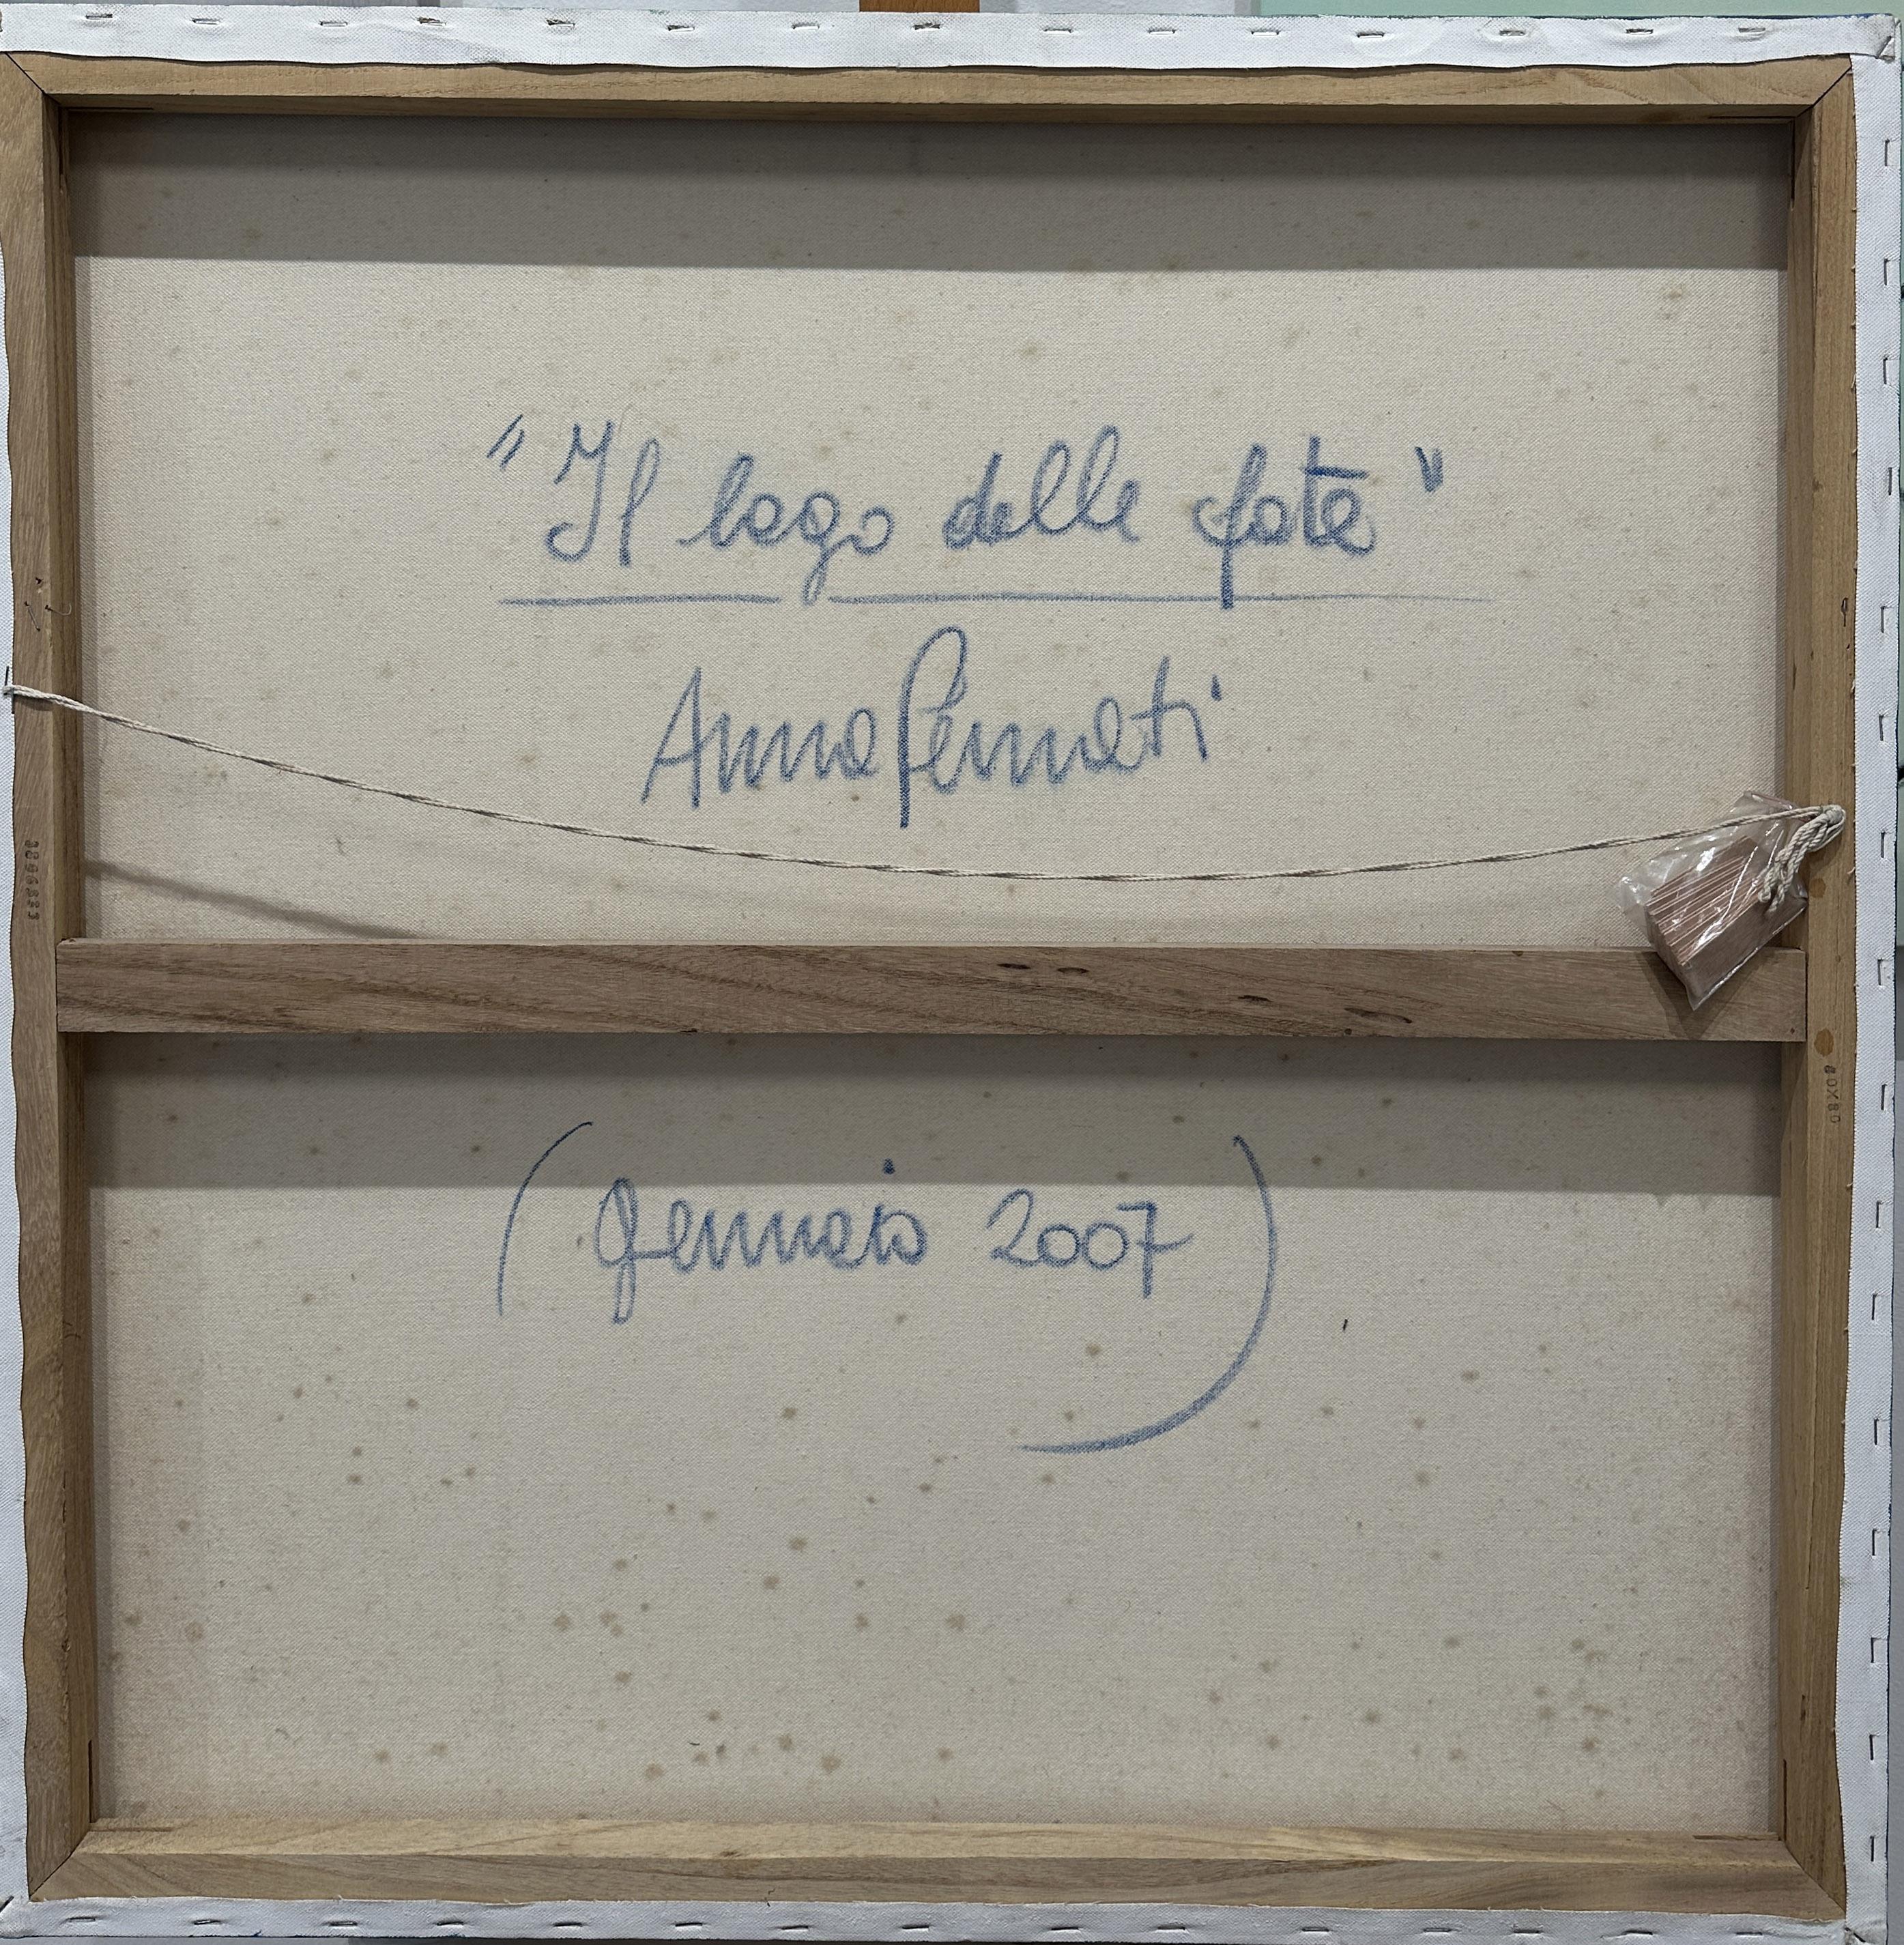 "Il lago delle fate"
Anna Pennati
(Gennaio 2007)
80X80